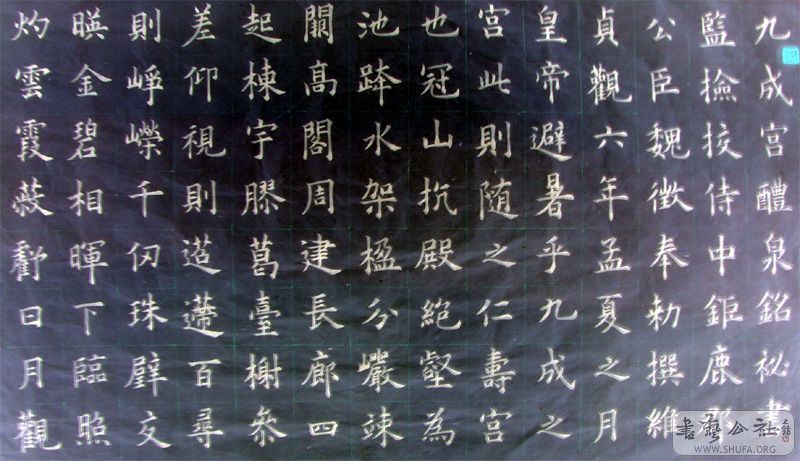 九成宫醴泉銘祕書
監撿挍侍中鉅鹿郡
公臣魏徵奉勅撰維
貞觀六年孟夏之月
皇帝避暑乎九成之
宫此則随之仁壽宫
也冠山抗殿絕壑為
池跨水架楹分巖竦
闕高閣周建長廊四
起棟宇膠葛臺榭參
差仰視則迢遰百尋
則崢嶸千仞珠璧交
暎金碧相暉下臨照
灼雲霞蔽虧日月觀
書藝公社
WWW.SHUFA.ORG